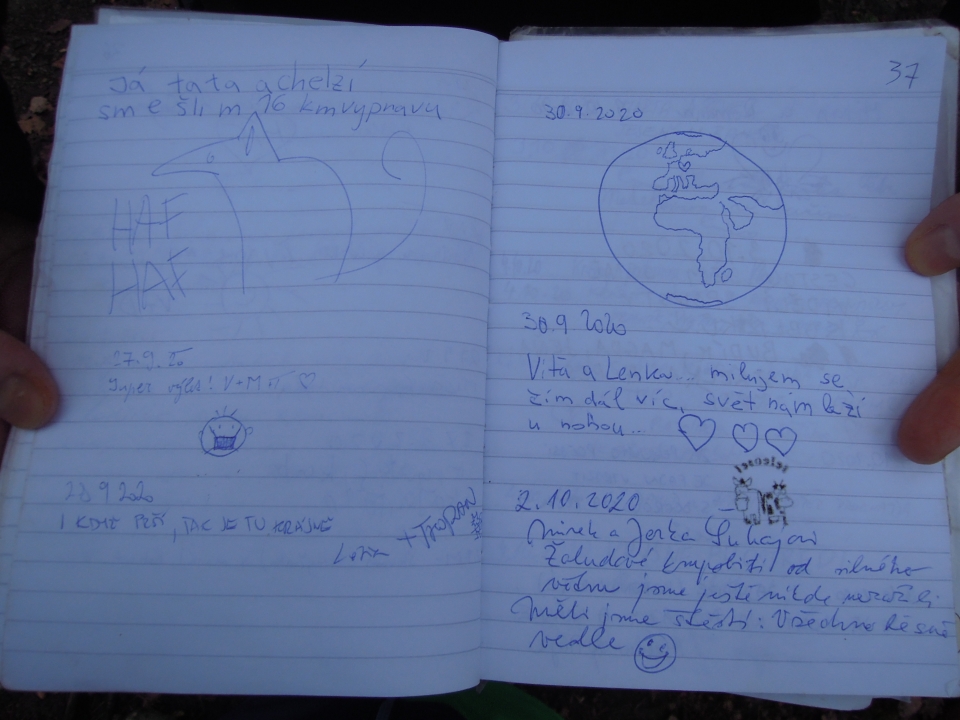 Já tata a chelzí
sme šli m 16 km výpravu
HAF
HAF
27.9.20
Super výlet! V+M
28.9.2020
I KDYŽ PRŠÍ, TAK JE TU KRÁSNĚ
37
30.9.2020
30.9 2020
Víťa a Lenka... milujem se
čím dál víc, svět nám leží
u nohou...
2.10.2020
Mirek a Jorka
Žaludové krupobití od silného
větru jsme ještě nikde nezažili
Měli jsme štěstí: Všechno těsně
vedle